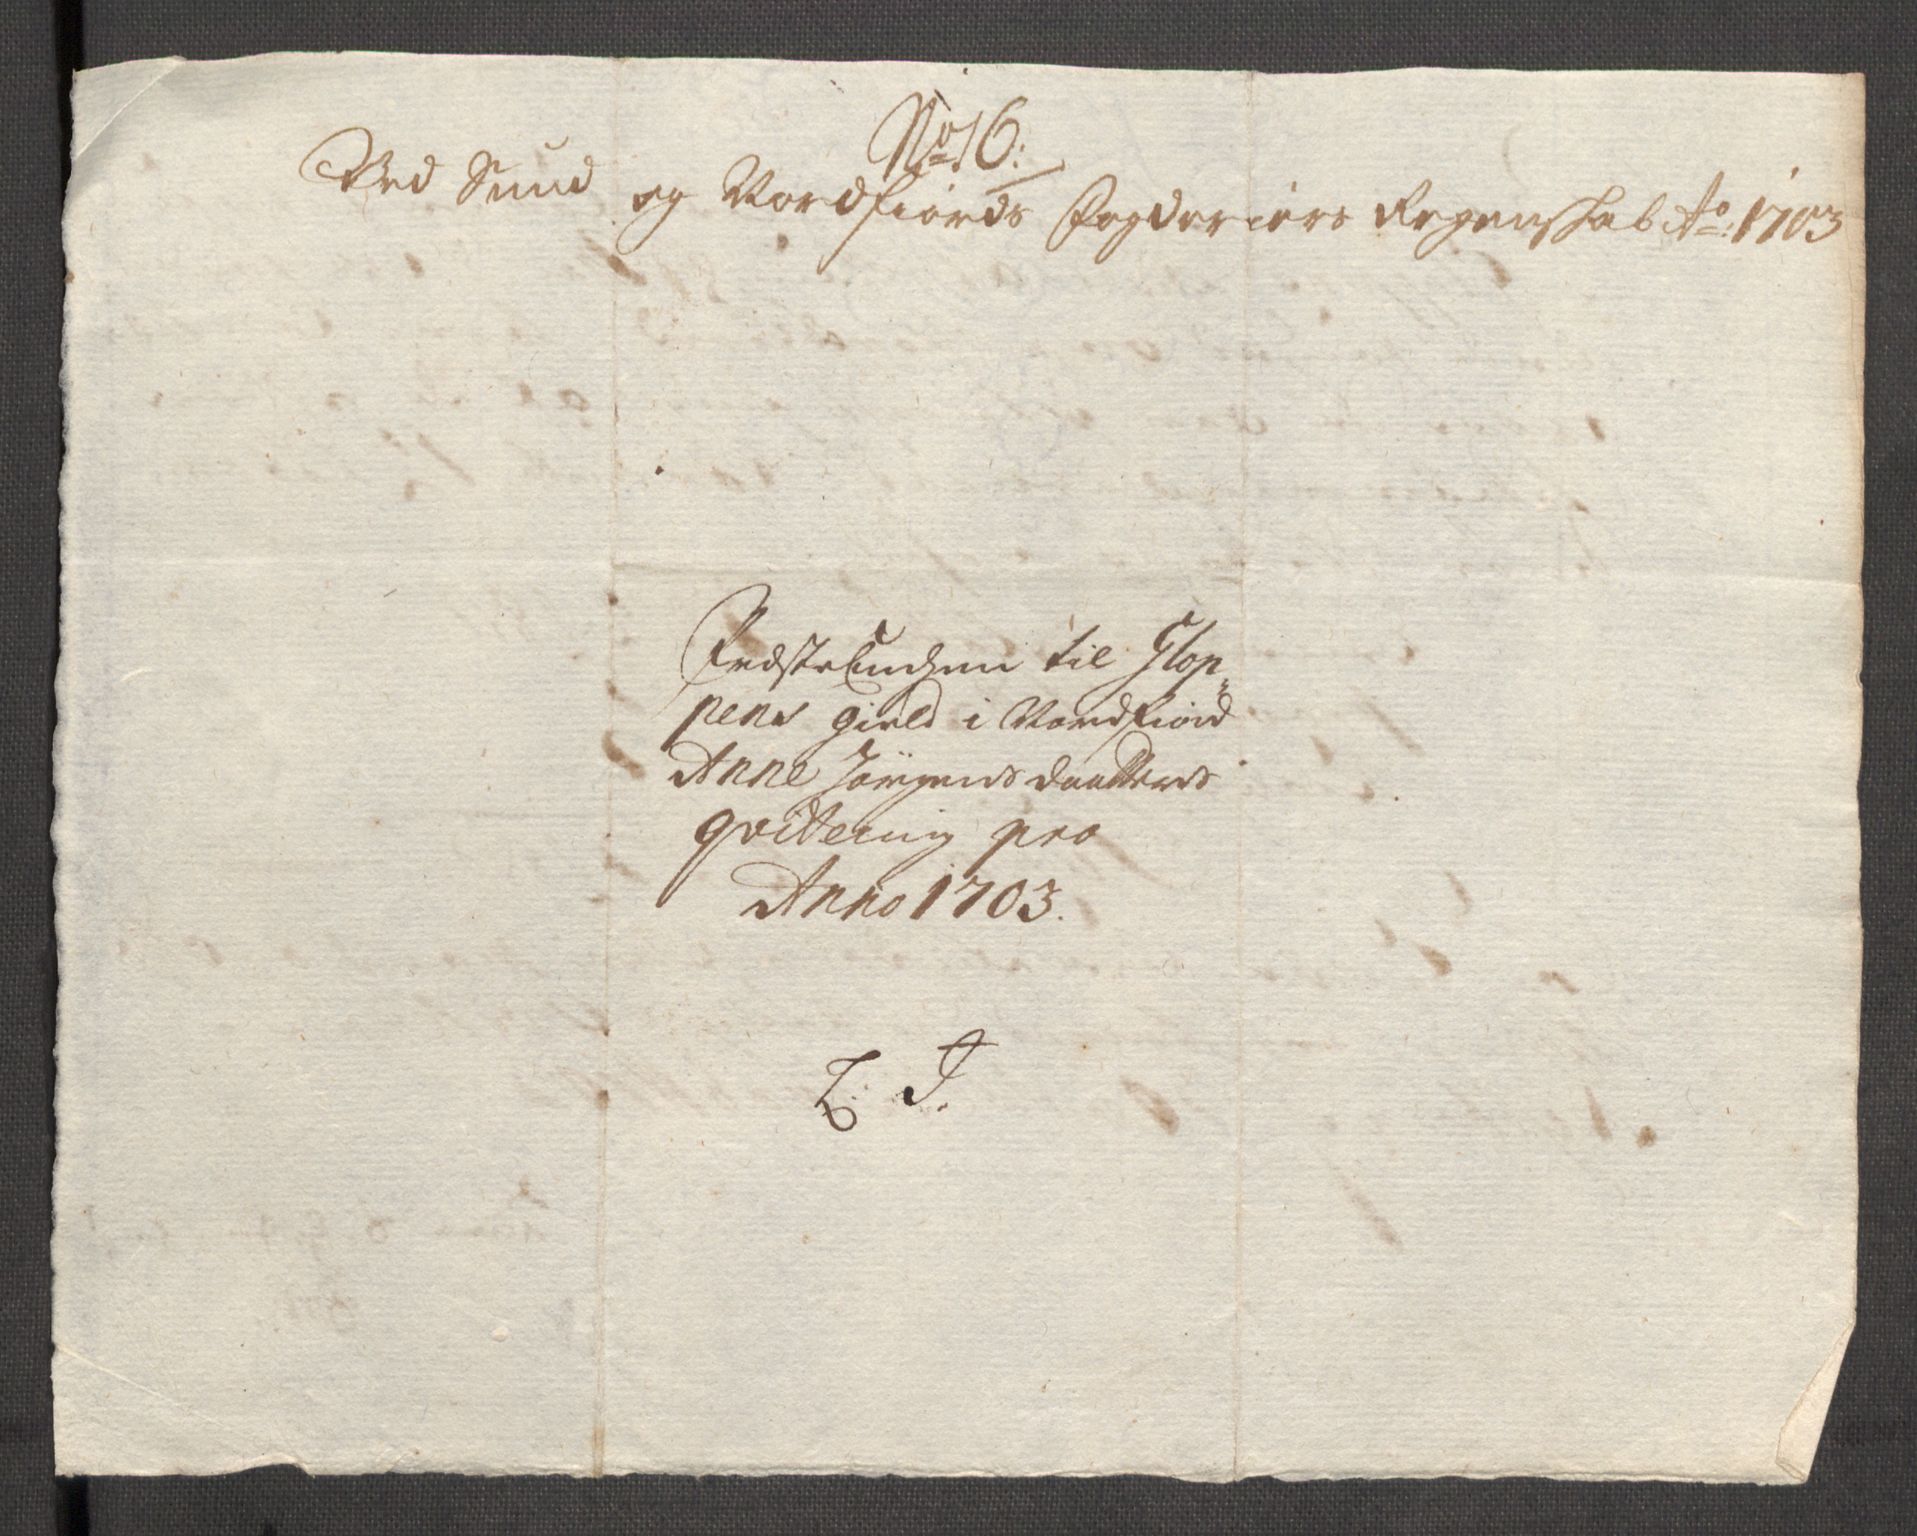 No. 16:
Ved Sund og Nordfiords Fogderiers Regenskab Ao: 1703
Predste Enchen til Glop-
pens gield i Nordfiord
Anne Jørgens daatters
qvittering pro
Anno 1703.
L: J.